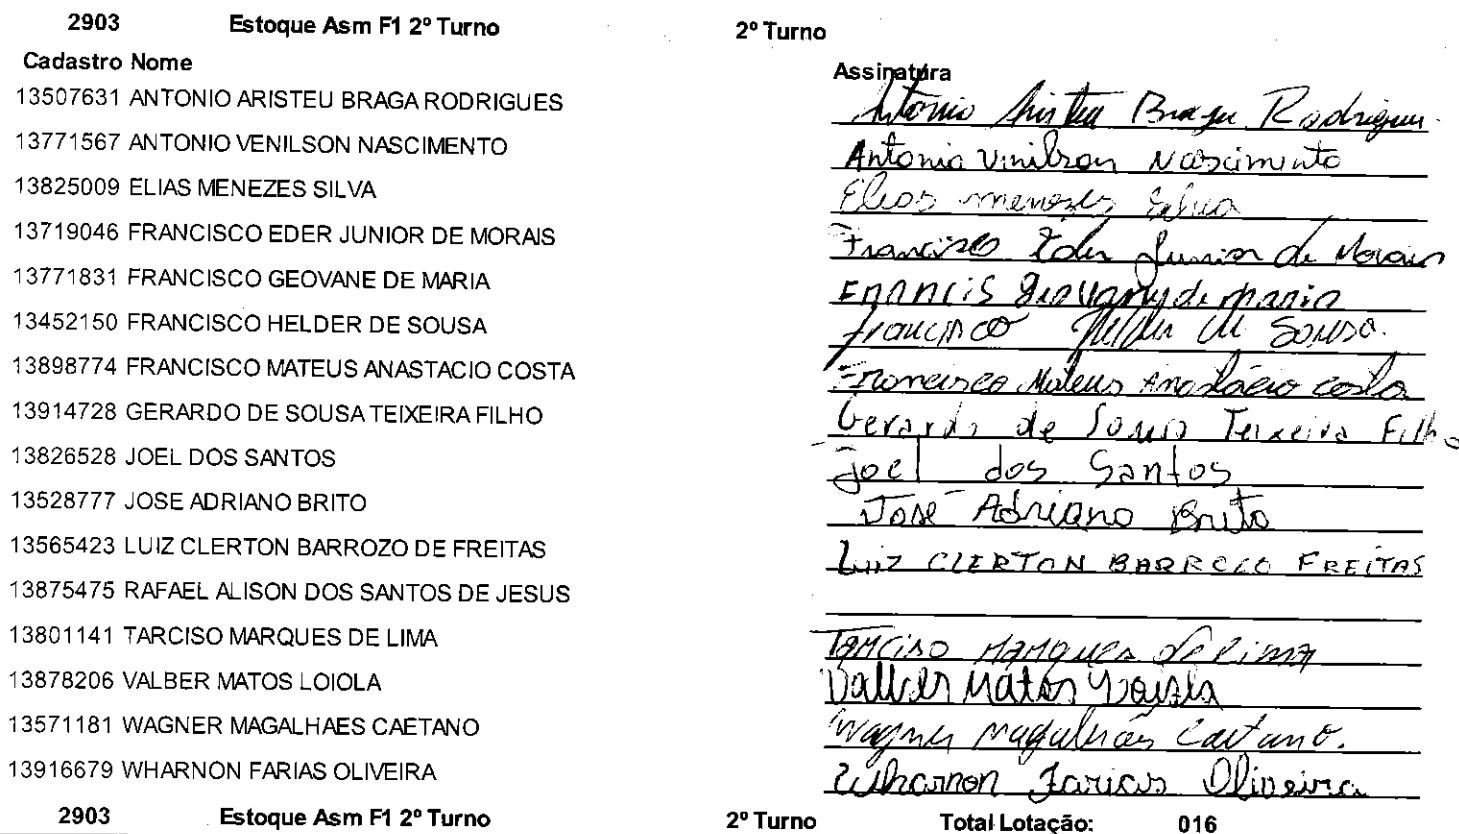 2903 Estoque Asm F1 2º Turno 2º Turno
Cadastro Nome Assinatura
13507631 ANTONIO ARISTEU BRAGA RODRIGUES Antonio Aristeu Braga Rodrigues
13771567 ANTONIO VENILSON NASCIMENTO Antonio Vinilson Nascimento
13825009 ELIAS MENEZES SILVA Elias menezes Silva
13719046 FRANCISCO EDER JUNIOR DE MORAIS Francisco Eder Junior de Morais
13771831 FRANCISCO GEOVANE DE MARIA Francis de maria
13452150 FRANCISCO HELDER DE SOUSA Francisco Helder de Sousa.
13898774 FRANCISCO MATEUS ANASTACIO COSTA Francisco Mateus Anastácio costa
13914728 GERARDO DE SOUSA TEIXEIRA FILHO Gerardo de Sousa Teixeira Filho
13826528 JOEL DOS SANTOS Joel dos Santos
13528777 JOSE ADRIANO BRITO José Adriano Brito
13565423 LUIZ CLERTON BARROZO DE FREITAS Luiz CLERTON BARROZO FREITAS
13875475 RAFAEL ALISON DOS SANTOS DE JESUS
13801141 TARCISO MARQUES DE LIMA TARCISO MARQUES de lima
13878206 VALBER MATOS LOIOLA Valber Matos Loiola
13571181 WAGNER MAGALHAES CAETANO Wagner Magalhães Caetano.
13916679 WHARNON FARIAS OLIVEIRA Wharnon Farias Oliveira
2903 Estoque Asm F1 2º Turno 2º Turno Total Lotação: 016